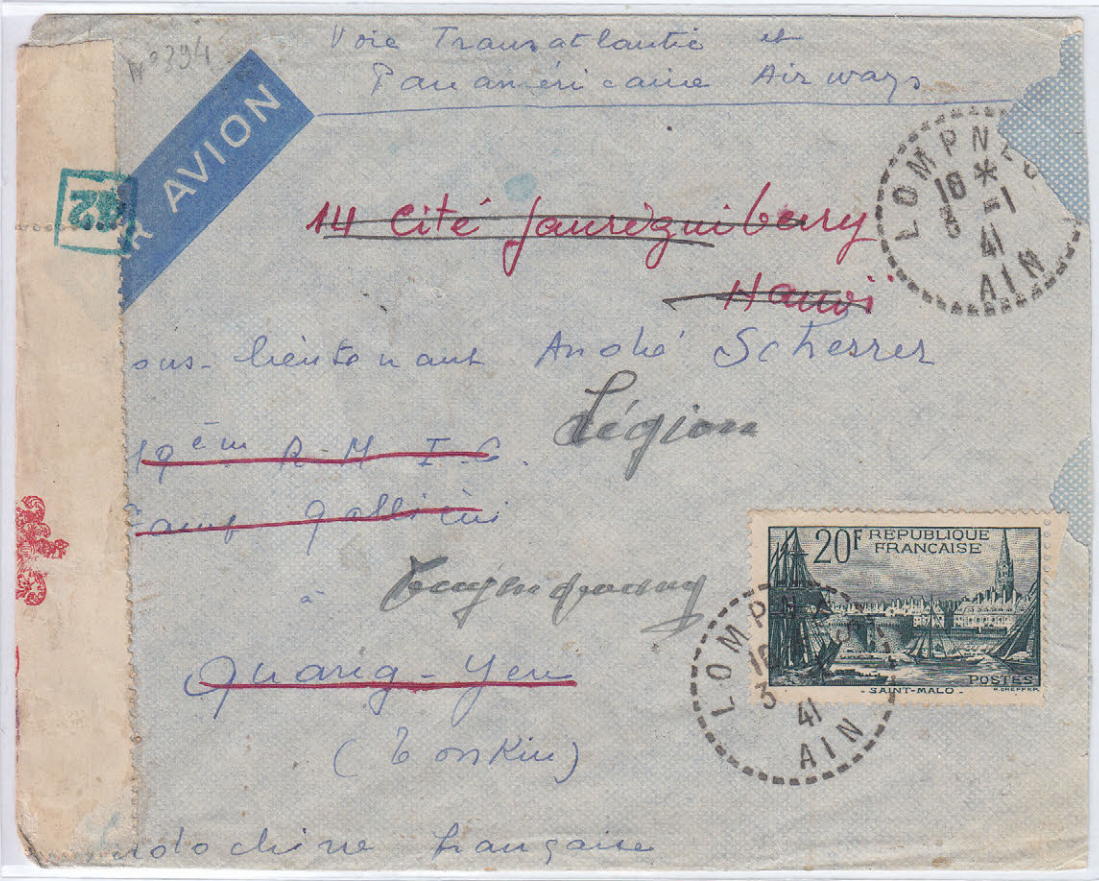 N° 394
Voie Transatlantic et
Panaméricaine Airways
AVION
42
LOMPN
18 * -1
3
41
AIN
14 Cité Jauréguiberry
Hanoï
ous-lieutenant André Scherrer
Légion
19ème R.M.I.C.
Camp Galliéni
à
Quang-Yen
(Tonkin)
Indochine française
20F RÉPUBLIQUE
FRANÇAISE
POSTES
- SAINT-MALO -
LOMPN
18
3
41
AIN